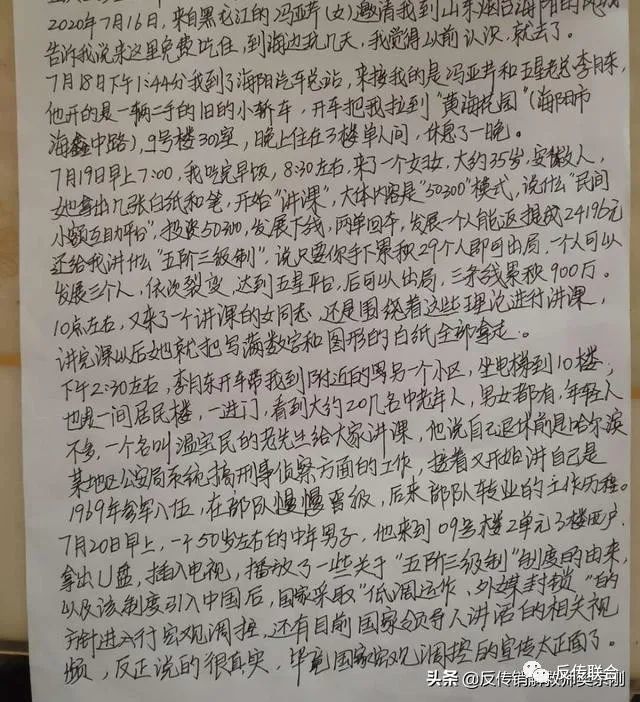 2020年7月16日，来自黑龙江的冯亚芹(女)邀请我到山东烟台海阳的
告诉我说来这里免费吃住，到海边玩几天，我觉得以前认识，就去了。
7月18日下午1:44分我到了海阳汽车总站，来接我的是冯亚芹和五星老总李月东，
他开的是一辆二手的旧的小轿车，开车把我拉到"黄海花园"(海阳市
海鑫中路)，9号楼302室，晚上住在了3楼单人间，休息了一晚。
7月19日早上7:00，我吃完早饭，8:30左右，来了一个女的，大约35岁，安徽人，
她拿出几张白纸和笔，开始"讲课"，大体内容是"50300"模式，说什么"民间
小额互助平台"，投资50300，发展下线，两单回本，发展一个人能返提成24196元
还给我讲什么"五阶三级制"，说只要你手下累积29个人即可出局，一个人可以
发展三个人，依次裂变，达到五星平台，后可以出局，三条线累积900万。
10点左右，又来了一个讲课的女同志，还是围绕着这些理论进行讲课，
讲完课以后她就把写满数字和图形的白纸全部拿走。
下午2:30左右，李月东开车带我到附近的另一个小区，坐电梯到10楼，
也是一间居民楼，一进门，看到大约20几名中老年人，男女都有，年轻人
不多，一个名叫温宝民的老先生给大家讲课，他说自己退休前是哈尔滨
某地区公安局系统搞刑事侦察方面的工作，接着又开始讲自己是
1969年参军入伍，在部队慢慢晋级，后来部队转业的工作历程。
7月20日早上，一个50岁左右的中年男子，他来到09号楼2单元3楼西户，
拿出U盘，插入电视，播放了一些关于"五阶三级制"制度的由来，
以及该制度引入中国后，国家采取"低调运作、外媒封锁"的
方针进行宏观调控，还有目前国家领导人讲话的相关视
频，反正说的很真实，毕竟国家宏观调控的宣传太正面了。
反传联合
头条 @反传销解救师